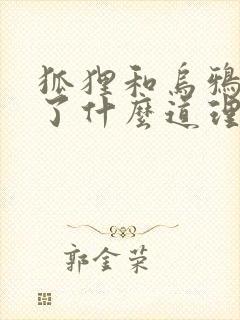 狐狸和烏鴉
了什麼道理
郭金荣